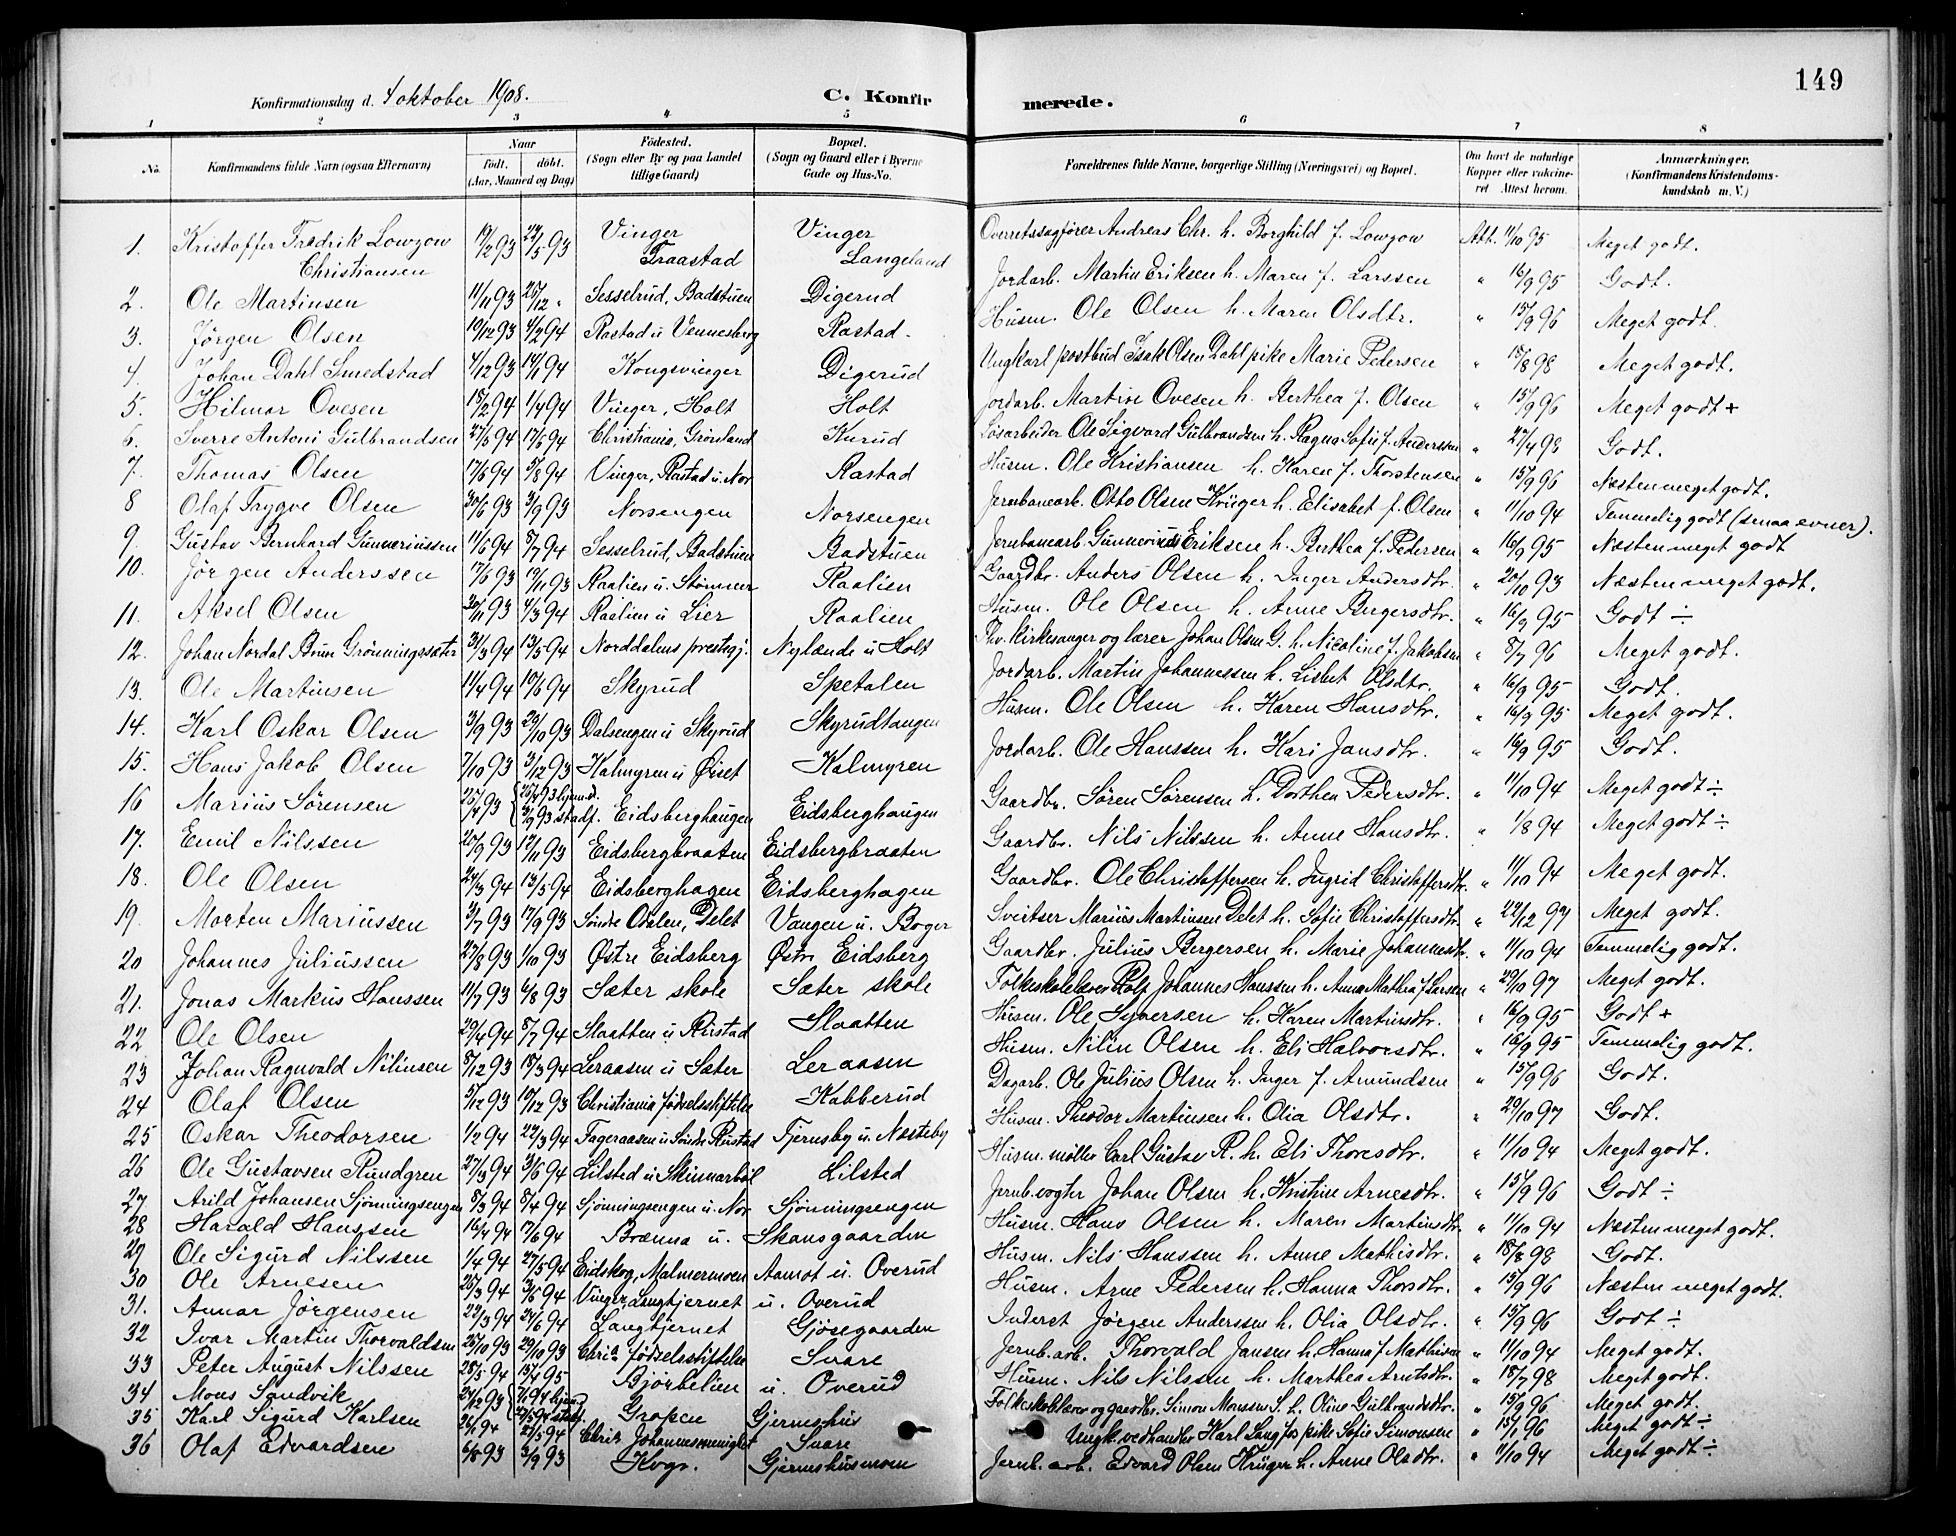 149
Konfirmationsdag d. 4 oktober 1908. C. Konfirmerede.
1 2 3 4 5 6 7 8
No. Konfirmandens fulde Navn (ogsaa Efternavn) Naar født. døbt. (Aar, Maaned og Dag) Fødested. (Sogn eller By og paa Landet tillige Gaard) Bopæl. (Sogn og Gaard eller i Byerne Gade og Hus-No. Forældrenes fulde Navne, borgerlige Stilling (Næringsvei) og Bopæl. Om havt de naturlige Kopper eller vakcineret Attest herom. Anmærkninger. (Konfirmandens Kristendomskundskab m. V.)
1. Kristoffer Fredrik Lowzow Christiansen 19/2 93 24/5 93 Vinger Traastad Vinger Langeland Overretssagfører Andreas Chr. h. Borghild f. Lowzow Att. 11/10 95 Meget godt.
2. Ole Martinsen 11/11 93 26/12 " Sesselrud, Badstuen Digerud Jordarb. Martin Eriksen h. Maren f. Larssen " 16/9 95 Godt.
3. Jørgen Olsen 10/12 93 4/2 94 Rastad u Vennesberg Rastad. Husm. Ole Olsen h. Maren Olsdtr. " 15/9 96 Meget godt.
4. Johan Dahl Smedstad 4/12 93 14/1 94 Kongsvinger Digerud Ungkarl postbud Isak Olsen Dahl pike Marie Pedersen " 18/8 98 Meget godt.
5. Hilmar Ovesen 18/2 94 1/4 94 Vinger, Holt Holt Jordarb. Martin Ovesen h. Berthea f. Olsen " 15/9 96 Meget godt +
6. Sverre Antoni Gulbrandsen 27/5 94 17/6 94 Christiania, Grønland Kurud Løsarbeider Ole Sigvard Gulbrandsen h. Ragna Sofie f. Anderssen " 27/4 98 Godt.
7. Thomas Olsen 17/6 94 5/8 94 Vinger, Rastad u. Nor Rastad Husm. Ole Kristiansen h. Karen f. Thorstensen " 15/9 96 Næsten meget godt.
8 Olaf Trygve Olsen 30/6 93 3/9 93 Norsengen Norsengen Jernbanearb. Otto Olsen Krüger h. Elisabet f. Olsen " 11/10 94 Temmelig godt (smaa evner).
9. Gustav Bernhard Gunneriussen 11/6 94 8/7 94 Sesselrud, Badstuen Badstuen Jernbanearb. Gunnerius Eriksen h. Berthea f. Pedersen " 16/9 95 Næsten meget godt
10. Jørgen Anderssen 17/6 93 19/11 93 Raalien u. Stømner Raalien Gaardbr. Anders Olsen h. Inger Andersdtr. " 20/10 93 Næsten meget godt.
11. Aksel Olsen 30/11 93 4/3 94 Raalien u Lier Raalien Husm. Ole Olsen h. Anne Bergersdtr. " 16/9 95 Godt ÷
12. Johan Nordal Brun Grønningsæter 31/3 94 13/5 94 Norddalens prestegj. Nylænde u Holt Fhv. kirkesanger og lærer Johan Olsen G. h. Nicoline f. Jakobsen " 8/7 96 Meget godt.
13. Ole Martinsen 11/4 94 10/6 94 Skyrud Spetalen Jordarb. Martin Johannessen h. Lisbet Olsdtr. " 16/9 95 Godt.
14. Karl Oskar Olsen 3/9 93 29/10 93 Dalsengen u Skyrud Skyrudtangen Husm. Ole Olsen h. Karen Hansdtr. " 16/9 95 Meget godt.
15. Hans Jakob Olsen 7/10 93 3/12 93 Kalmyren u Øiset Kalmyren Jordarb. Ole Hanssen h. Kari Jansdtr. " 16/9 95 Godt.
16 Marius Sørensen 93 hjemmed. 3/9 93 stadf. Eidsberghaugen Eidsberghaugen Gaardbr. Søren Sørensen h. Dorthea Pedersdtr. " 11/10 94 Meget godt ÷
17. Emil Nilssen 20/9 93 12/11 93 Eidsbergbraaten Eidsbergbraaten Gaardbr. Nils Nilssen h. Anne Hansdtr. " 1/8 94 Meget godt ÷
18. Ole Olsen 24/3 94 13/5 94 Eidsberghagen Eidsberghagen Gaardbr. Ole Christoffersen h. Ingrid Christoffersdtr. " 11/10 94 Meget godt.
19. Morten Mariussen 3/7 93 17/9 93 Søndre Odalen, Delet Vangen u. Boger Sveitser Marius Martinsen Delet h. Sofie Christoffersdtr. " 22/12 97 Meget godt.
20 Johannes Juliussen 27/8 93 1/10 93 Østre Eidsberg Østre Eidsberg Gaardbr. Julius Bergersen h. Marie Johannesdtr. " 11/10 94 Temmelig godt.
21. Jonas Markus Hanssen 11/7 93 6/8 93 Sæter skole Sæter skole Folkeskolelærer Johannes Hanssen h. Anna Mathia f. Larsen " 29/10 97 Meget godt.
22 Ole Olsen 29/4 94 8/7 94 Slaatten u Rustad Slaatten Husm. Ole Syversen h. Karen Martinsdtr. " 16/9 95 Godt +
23 Johan Ragnvald Nilinsen 8/12 93 18/3 94 Leraasen u Sæter Leraasen Husm. Nilin Olsen h. Eli Halvorsdtr. " 16/9 95 Temmelig godt.
24 Olaf Olsen 5/12 93 10/12 93 Christiania fødselsstiftelse Kabberud Dagarb. Ole Julius Olsen h. Inger f. Amundsen " 15/9 96 Godt.
25 Oskar Theodorsen 1/2 94 22/3 94 Fageraasen u Søndre Rustad Tjernsby u. Næsteby Husm. Theodor Martinsen h. Olia Olsdtr. " 29/10 97 Godt.
26 Ole Gustavsen Rundgren 27/3 94 3/6 94 Lilsted u Skinnarbøl Lilsted Husm. møller Carl Gustav R. h. Eli Thoresdtr. " 11/10 94 Meget godt.
27 Arild Johansen Sjønningsengen 8/3 94 8/4 94 Sjønningsengen u. Nor Sjønningsengen Jernb.vogter Johan Olsen h. Kristine Arnesdtr. " 15/9 96 Godt ÷
28 Harald Hanssen 16/4 94 17/6 94 Brænna u. Skansgaarden Husm. Hans Olsen h. Maren Martinsdtr. " 11/10 94 Næsten meget godt.
29 Ole Sigurd Nilssen 1/4 94 27/5 94 Eidskog, Malmermoen Aamot u. Overud Husm. Nils Hanssen h. Anne Mathisdtr. " 18/8 98 Godt.
30 Ole Arnesen 25/3 94 3/6 94 Vinger, Langtjernet u. Overud Husm. Arne Pedersen h. Hanna Thorsdtr. " 15/9 96 Næsten meget godt.
31. Annar Jørgensen 22/3 94 24/6 94 Langtjernet Gjøsegaarden Inderst Jørgen Anderssen h. Olia Olsdtr. " 15/9 96 Godt ÷
32 Ivar Martin Thorvaldsen 25/10 93 29/10 93 Chria fødselsstiftelse Snare Jernb.arb. Thorvald Jansen h. Hanna f. Mathisen " 11/10 94 Meget godt.
33 Peter August Nilssen 28/5 94 15/4 95 Bjørbelien u. Overud Husm. Nils Nilssen h. Marthea Arntsdtr. " 18/7 98 Meget godt.
34 Mons Sandvik 24/12 93 94 hjemmed. 94 stadf. Gropen Gjermshus Folkeskolelærer og gaardbr. Simon Monssen S. h. Oline Gulbrandsdtr. " 15/9 96 Meget godt.
35 Karl Sigurd Karlsen 26/1 94 27/5 94 Chria Johannesmenighet Snare Ungk. vedhandler Karl pike Sofie Simonsen " 15/1 96 Meget godt ÷
36 Olaf Edvardsen 6/8 93 3/9 93 Kvgr. Gjermshusmoen Jernb. arb. Edvard Olsen Krüger h. Anne Olsdtr. " 11/10 94 Meget godt ÷